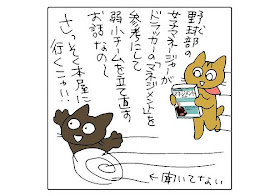 野球部の
女子マネージャーが
ドラッカーの「マネジメント」を
参考にして
弱小チームを立て直す
お話なの〜
さっそく本屋に
行くニャ!!
←聞いてない